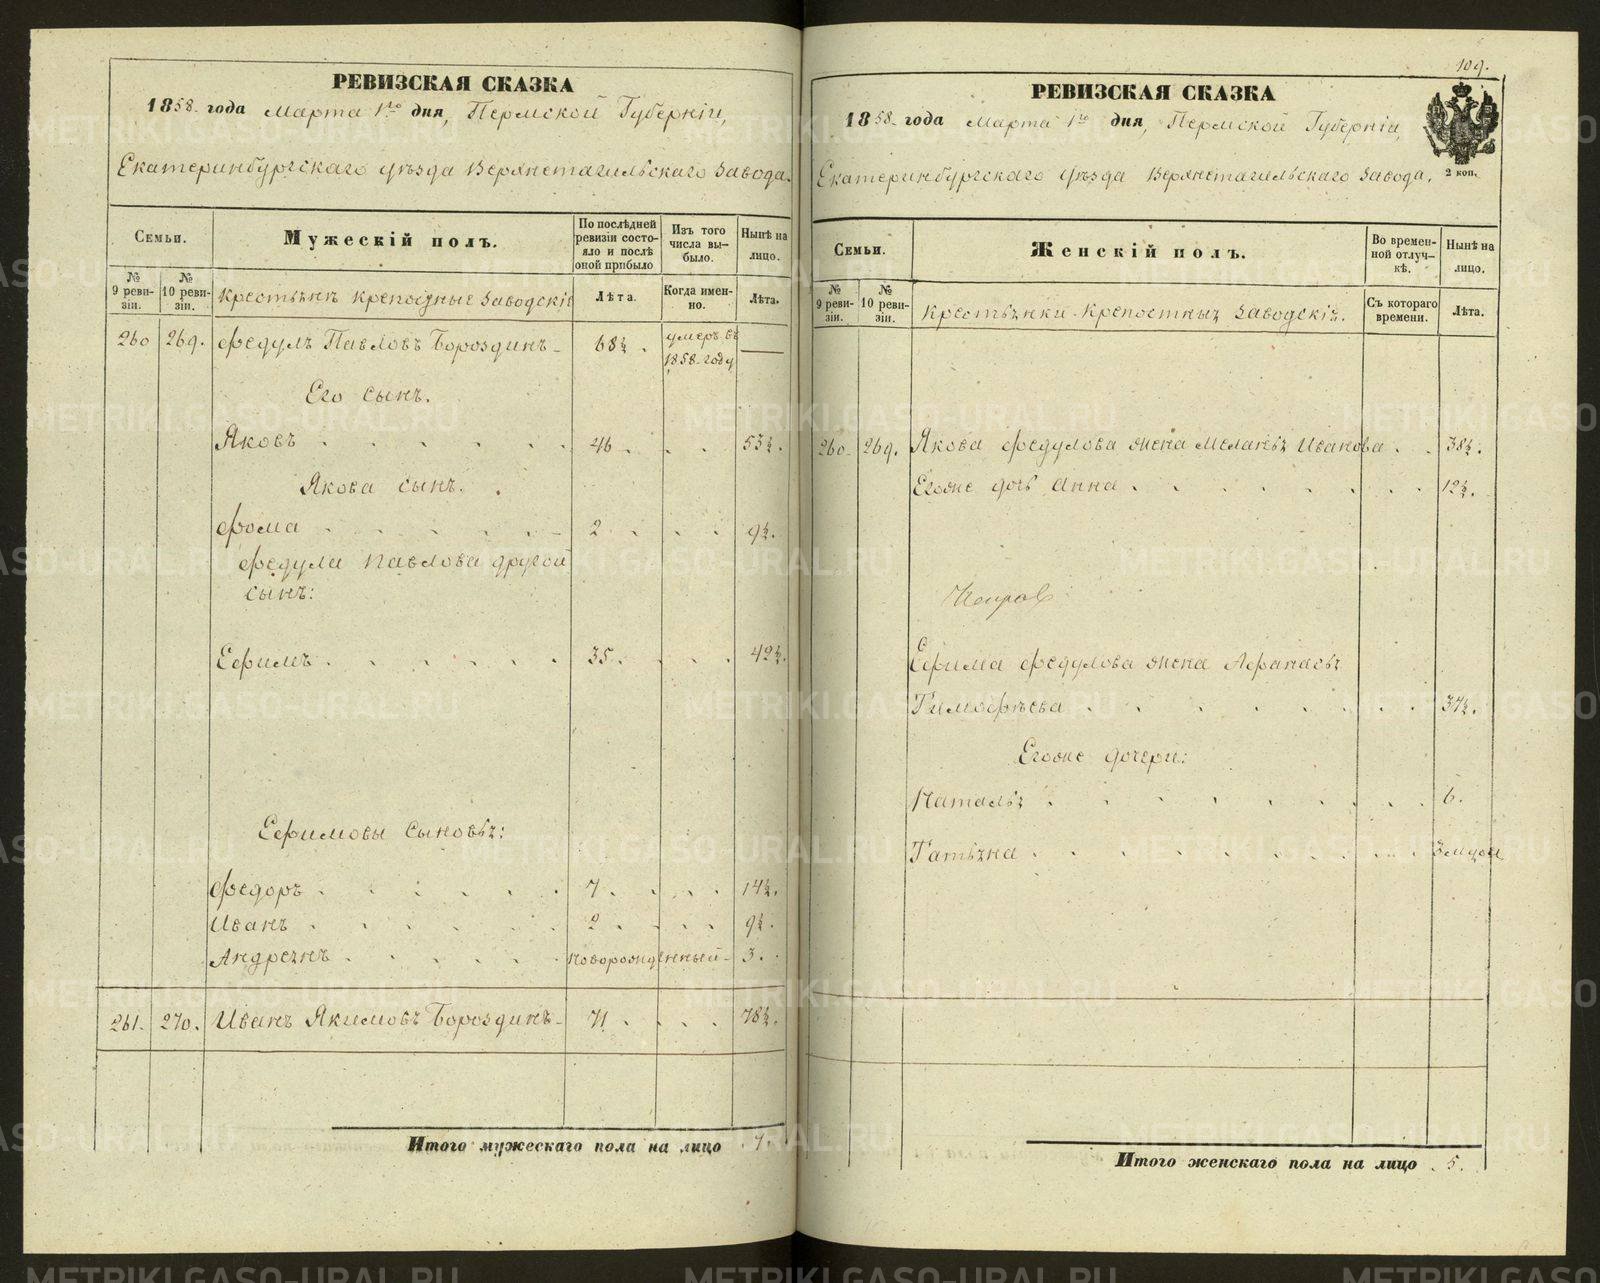 РЕВИЗСКАЯ СКАЗКА
1858 года Марта 1го дня, Пермской Губерніи,
Екатеринбургскаго уѣзда Верхнетагильскаго Завода.
Семьи.
Мужескій полъ.
По послѣдней ревизіи состояло и послѣ оной прибыло
Изъ того числа выбыло.
Нынѣ на лицо.
№ 9 ревизіи.
№ 10 ревизіи.
Крестьянъ крепостные Заводскіе
Лѣта.
Когда именно.
Лѣта.
260 269. Федулъ Павловъ Бороздинъ 68½. умеръ въ 1858 году —
Его сынъ.
Яковъ 46. 53½.
Якова сынъ.
Фома 2 9½.
Федула Павлова другой
сынъ:
Ефимъ 35. 42½.
Ефимовы сыновья:
Федоръ 7. 14½.
Иванъ 2 9½.
Андреянъ новорожденный 3.
261. 270. Иванъ Якимовъ Бороздинъ 71. 78½.
Итого мужескаго пола на лицо 7.
109.
РЕВИЗСКАЯ СКАЗКА
1858 года Марта 1го дня, Пермской Губерніи,
Екатеринбургскаго уѣзда Верхнетагильскаго Завода.
2 коп.
Семьи.
Женскій полъ.
Во временной отлучкѣ.
Нынѣ на лицо.
№ 9 ревизіи.
№ 10 ревизіи.
Крестьянки Крепостныя Заводскія.
Съ котораго времени.
Лѣта.
260. 269. Якова Федулова жена Меланья Иванова 38½.
Егоже дочь Анна 12½.
Ефима Федулова жена Афанасья
Тимофѣева 37½.
Егоже дочери:
Наталья 6.
Татьяна 3 мѣсяц
Итого женскаго пола на лицо 5.
METRIKI.GASO-URAL.RU